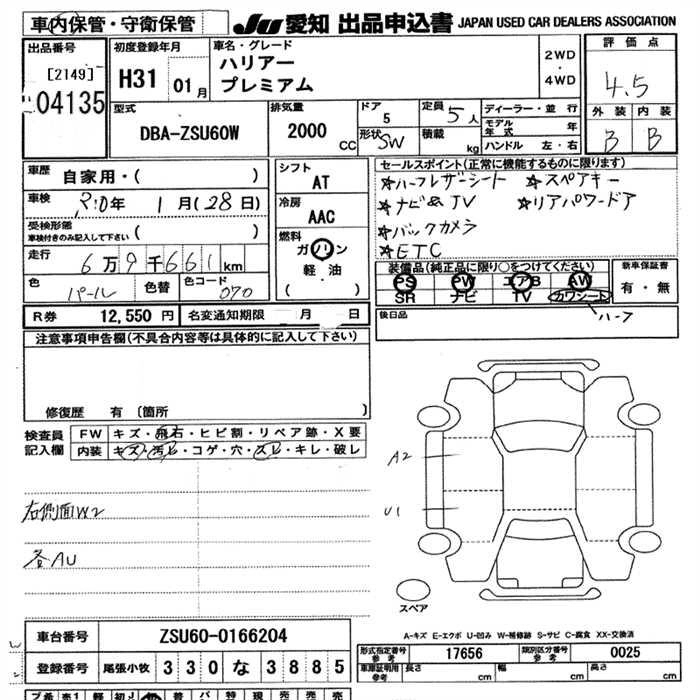 車内保管・守衛保管
JU 愛知 出品申込書 JAPAN USED CAR DEALERS ASSOCIATION
出品番号
[2149]
04135
初度登録年月
H31 01月
車名・グレード
ハリアー
プレミアム
2WD
・
4WD
評価点
4.5
外装 内装
B B
型式
DBA-ZSU60W
排気量
2000 CC
ドア
5
形状 SW
定員 5 人
積載 kg
ディーラー・並行
モデル年式 年
ハンドル 左・右
車歴
自家用・( )
車検
年 1月(28日)
受検形態
車検付きのみ記入して下さい ( )
走行
6万9千661km
色 パール 色替 色コード 070
シフト
AT
冷房
AAC
燃料
ガソリン
軽・油
( ・ )
セールスポイント(正常に機能するものに限ります)
☆ハーフレザーシート ☆スペアキー
☆ナビ&TV ☆リアパワードア
☆バックカメラ
☆ETC
装備品(純正品に限り○をつけてください)
PS PW エアB AW
SR ナビ TV カワシート
ハーフ
新車保証書
有・無
後日品
R券 12,550円 名変通知期限 月 日
注意事項申告欄(不具合内容等は具体的に記入して下さい)
修復歴 有 〔箇所 〕
検査員記入欄
FW キズ・飛石・ヒビ割・リペア跡・X要
内装 キズ・汚レ・コゲ・穴・スレ・キレ・破レ
右側面W2
各AU
A2
U1
スペア
A-キズ E-エクボ U-凹み W-補修跡 S-サビ C-腐食 XX-交換済
車台番号 ZSU60-0166204
登録番号 尾張小牧 330 な 3885
形式指定番号 参考 17656 類別区分番号 参考 0025
車庫証明用 参考 長さ cm 幅 cm 高さ cm